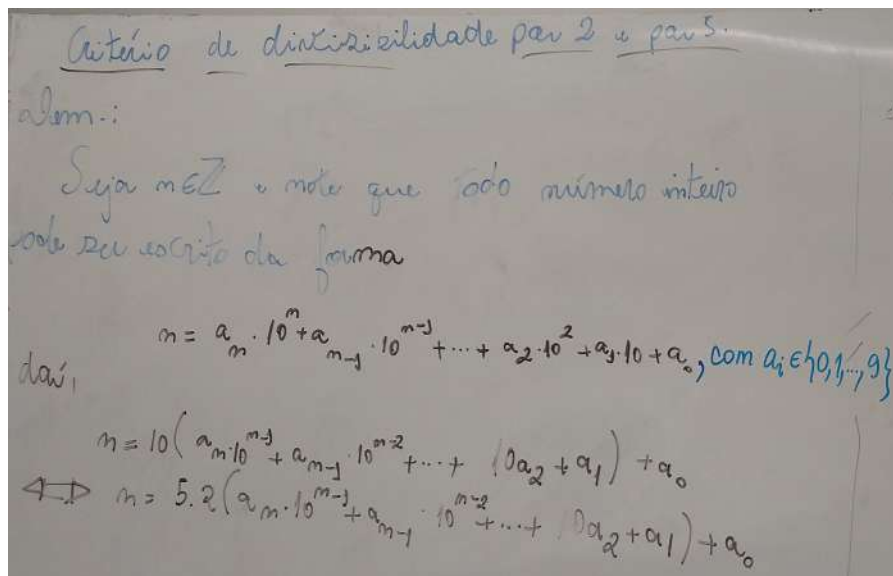 Critério de divisibilidade por 2 e por 5.
Dem.:
Seja n∈ℤ e note que todo número inteiro
pode ser escrito da forma
n = a_n · 10^n + a_{n-1} · 10^{n-1} + ... + a_2 · 10^2 + a_1 · 10 + a_0, com a_i ∈ {0,1,...,9}
daí,
n = 10(a_n · 10^{n-1} + a_{n-1} · 10^{n-2} + ... + 10a_2 + a_1) + a_0
⟺ n = 5.2(a_n · 10^{n-1} + a_{n-1} · 10^{n-2} + ... + 10a_2 + a_1) + a_0